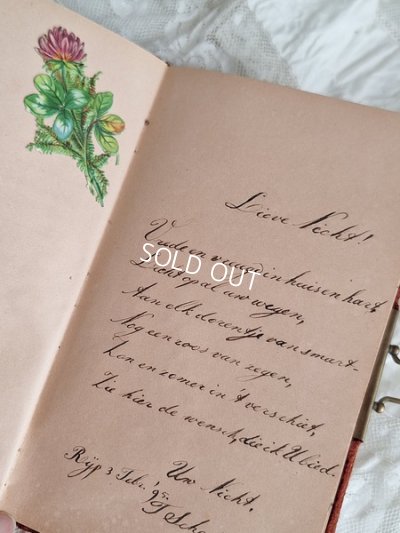 Lieve Nicht!
Vrede en vreugd in huis en hart,
Licht op al uw wegen,
Aan elk dorentje van smart
Nog een roos van zegen,
Zon en zomer in 't verschiet,
Zie hier de wensch, die ik U bied.
Uw Nicht,
Rijp 3 Febr.
SOLD OUT